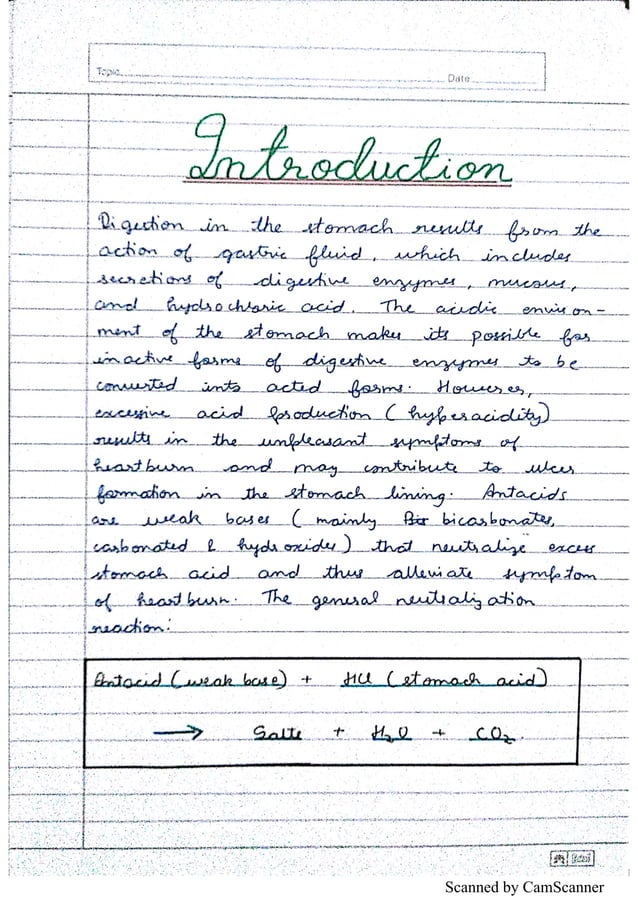 Topic
Date
Introduction
Digestion in the stomach results from the
action of gastric fluid, which includes
secretions of digestive enzymes, mucous,
and hydrochloric acid. The acidic environ-
ment of the stomach makes its possible for
inactive forms of digestive enzymes to be
converted into acted forms. However,
excessive acid production (hyperacidity)
results in the unpleasant symptoms of
heartburn and may contribute to ulcer
formation in the stomach lining. Antacids
are weak bases (mainly bicarbonates,
carbonated & hydroxides) that neutralize excess
stomach acid and thus alleviate symptom
of heartburn. The general neutralization
reaction:
Antacid (weak base) + HCl (stomach acid)
⟶ Salts + H₂O + CO₂.
Scanned by CamScanner